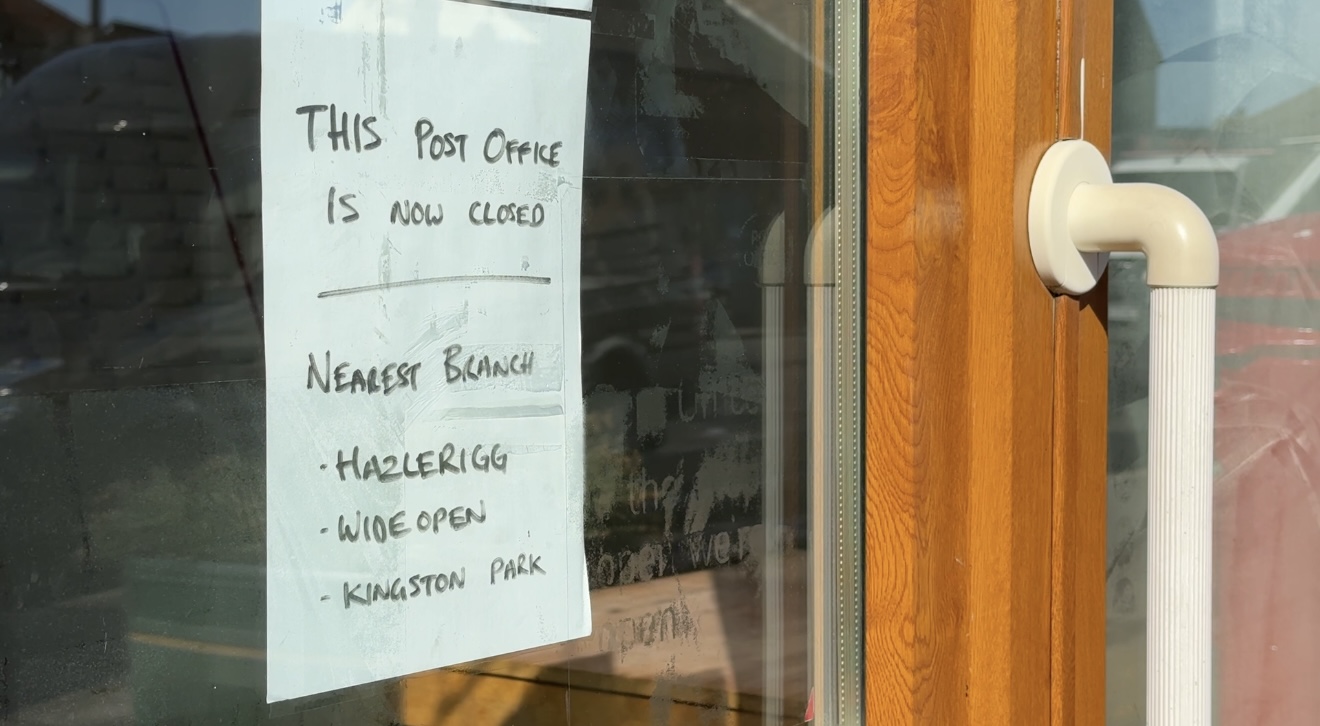 THIS POST OFFICE
IS NOW CLOSED
NEAREST BRANCH
· HAZLERIGG
- WIDEOPEN
- KINGSTON PARK
the